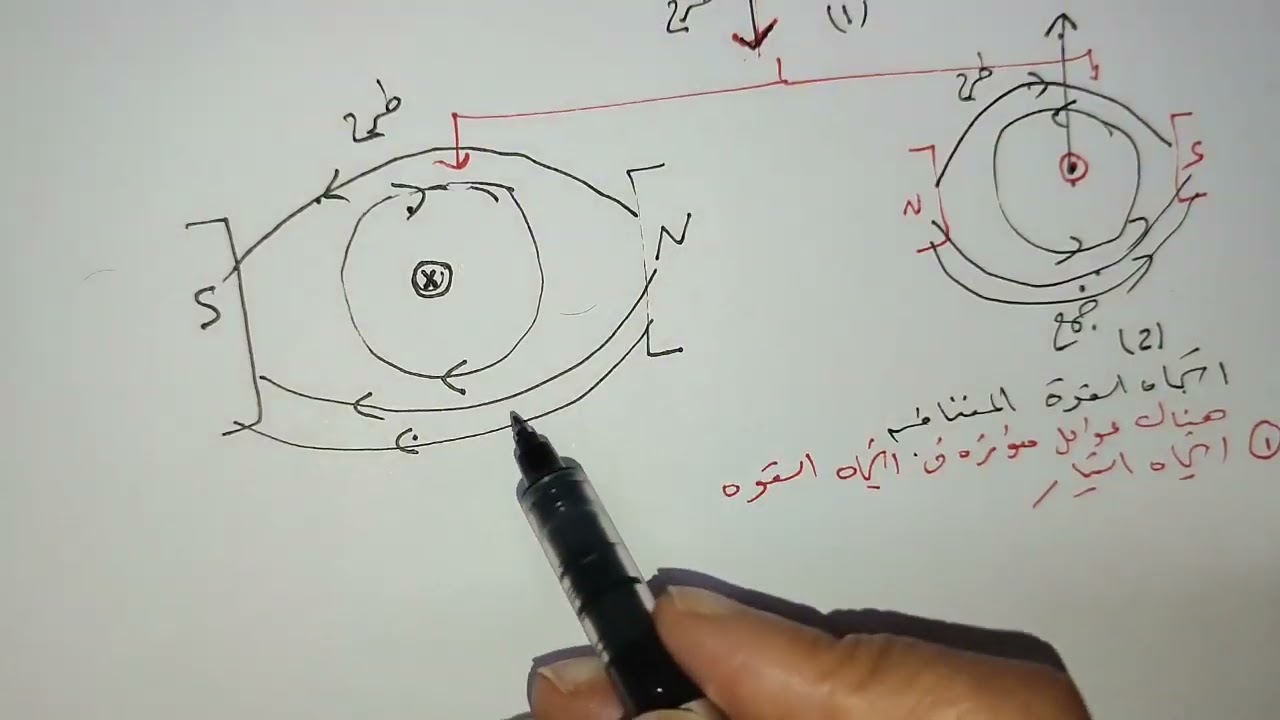 (1)
طرح
طرح
S
N
N
S
جمع
(2)
اتجاه القوة المغناطيسيه
هناك عوامل مؤثره في اتجاه القوه
① اتجاه التيار